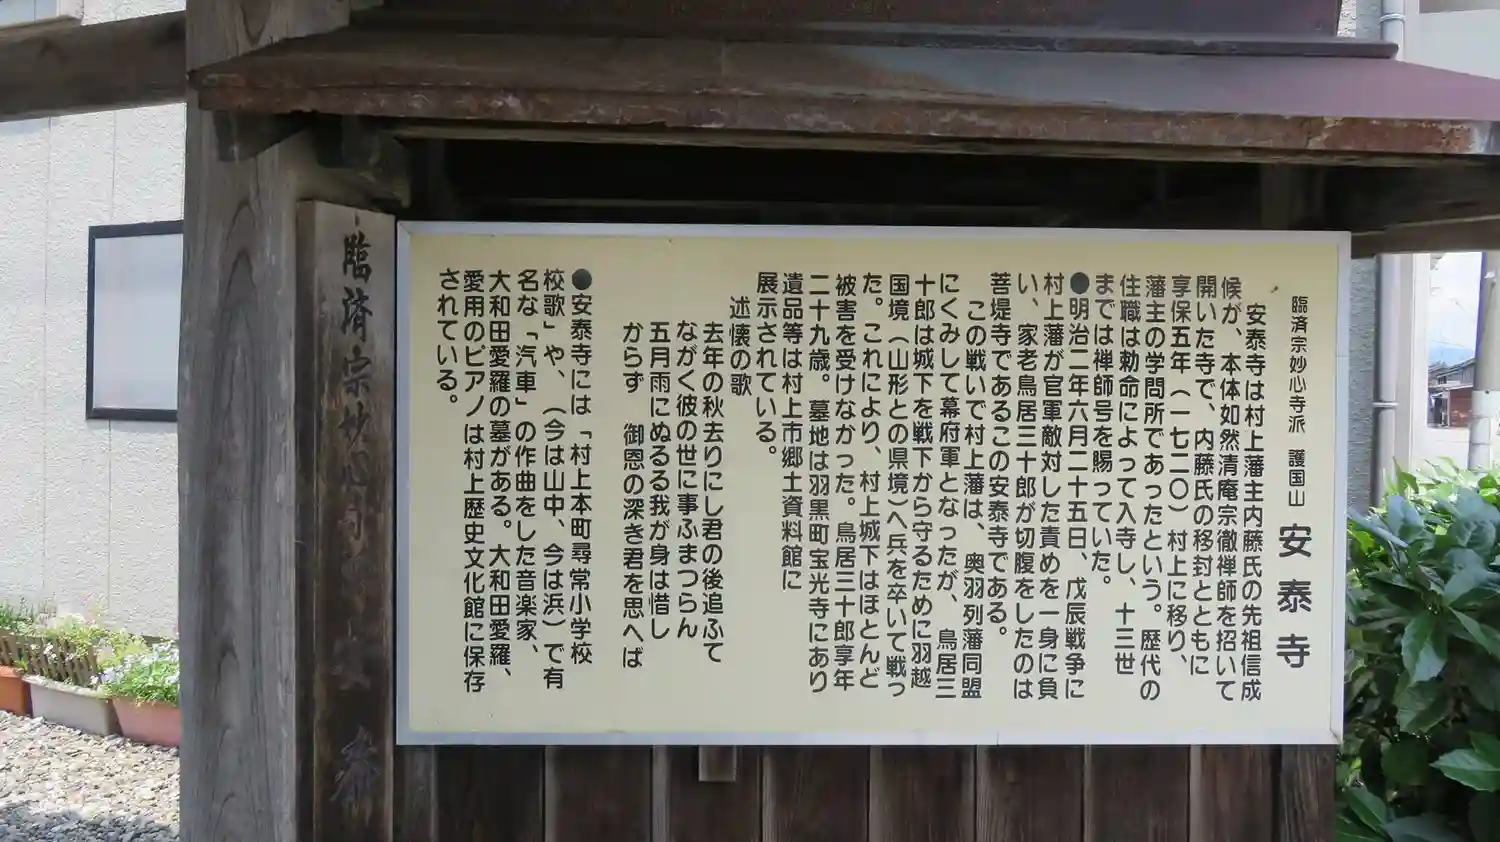 臨済宗妙心寺派 護国山 安泰寺
安泰寺は村上藩主内藤氏の先祖信成
候が、本体如然清庵宗徹禅師を招いて
開いた寺で、内藤氏の移封とともに
享保五年(一七二〇)村上に移り、
藩主の学問所であったという。歴代の
住職は勅命によって入寺し、十三世
までは禅師号を賜っていた。
●明治二年六月二十五日、戊辰戦争に
村上藩が官軍敵対した責めを一身に負
い、家老鳥居三十郎が切腹をしたのは
菩堤寺であるこの安泰寺である。
この戦いで村上藩は、奥羽列藩同盟
にくみして幕府軍となったが、鳥居三
十郎は城下を戦下から守るために羽越
国境(山形との県境)へ兵を卒いて戦っ
た。これにより、村上城下はほとんど
被害を受けなかった。鳥居三十郎享年
二十九歳。墓地は羽黒町宝光寺にあり
遺品等は村上市郷土資料館に
展示されている。
述懐の歌
去年の秋去りにし君の後追ふて
ながく彼の世に事ふまつらん
五月雨にぬるる我が身は惜し
からず 御恩の深き君を思へば
●安泰寺には「村上本町尋常小学校
校歌」や、(今は山中、今は浜)で有
名な「汽車」の作曲をした音楽家、
大和田愛羅の墓がある。大和田愛羅、
愛用のピアノは村上歴史文化館に保存
されている。
臨済宗妙心寺